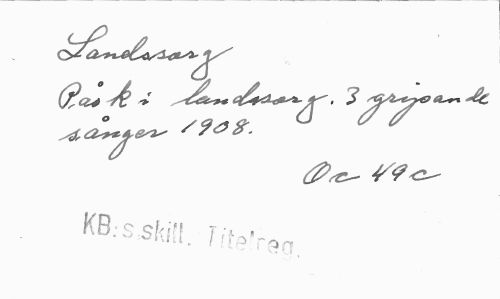 Landssorg
Påsk i landssorg. 3 gripande
sånger 1908.
Oc 49c
KB:s skill. Titelreg.